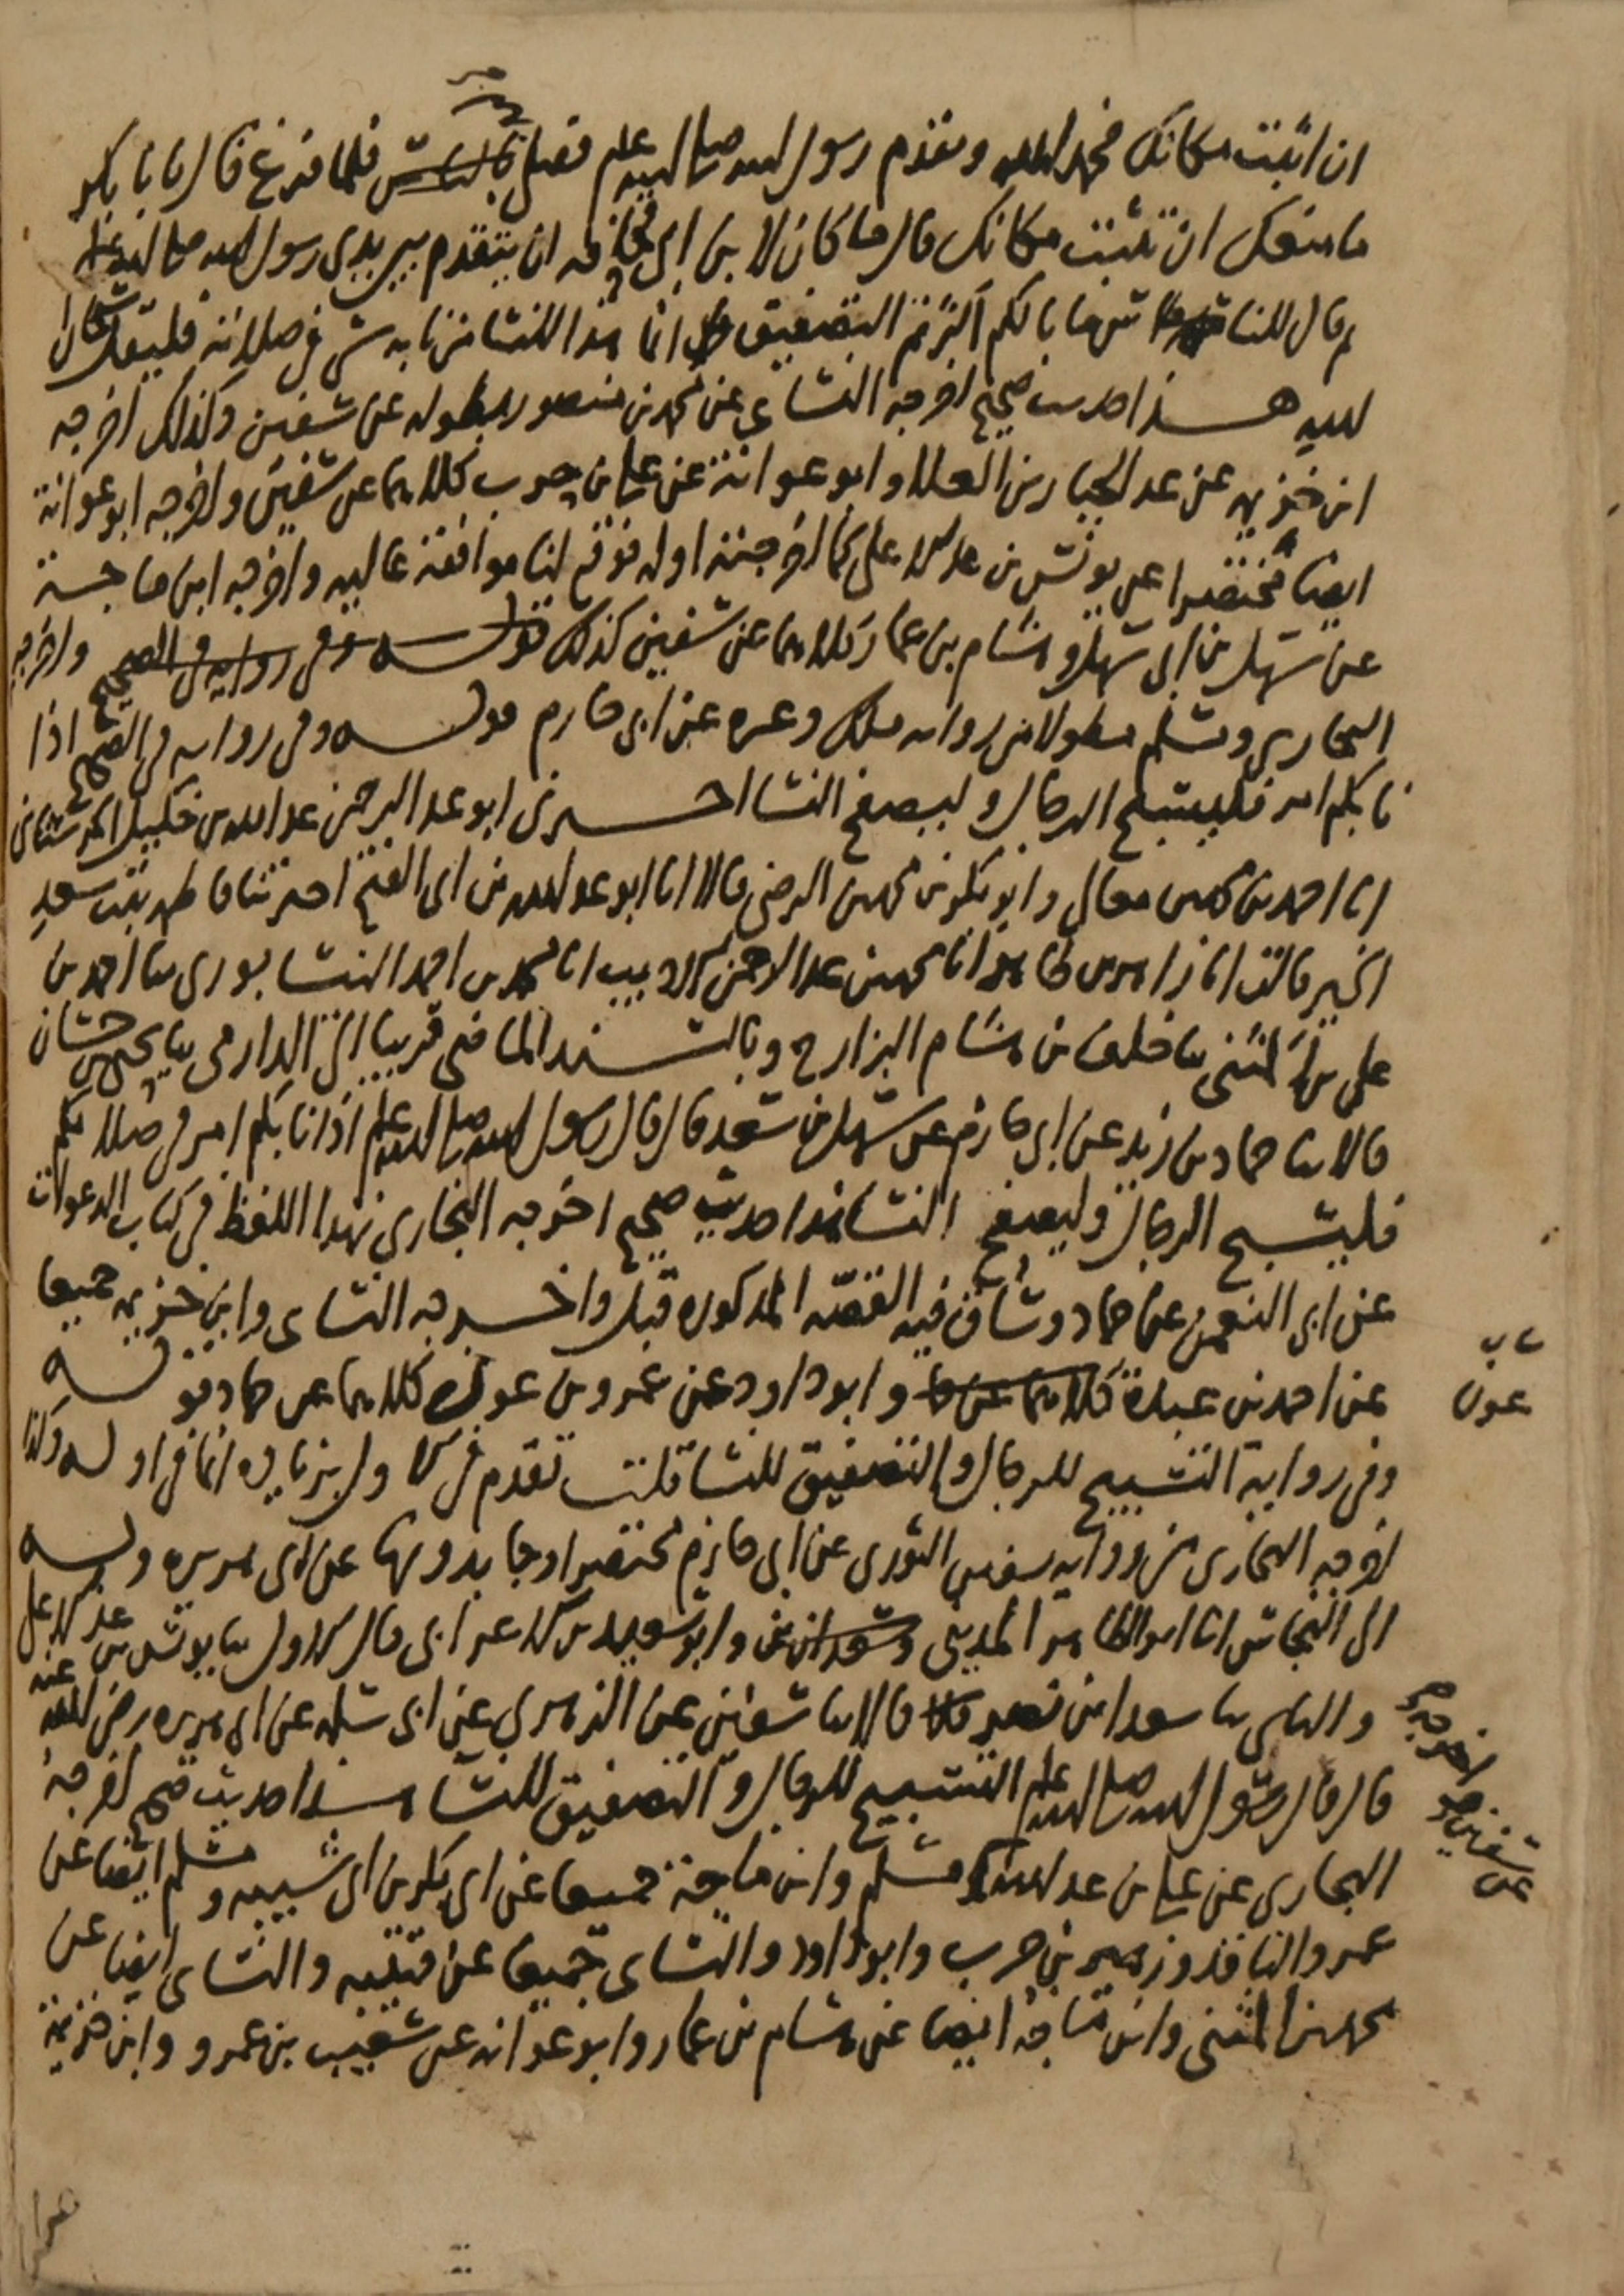 ان اثبت مكانك فحمد الله وتقدم رسول الله صلى الله عليه وسلم فصلى فلما فرغ قال يا ابا بكر
ما منعك ان تثبت مكانك قال ما كان لابن ابي قحافه ان يتقدم بين يدي رسول الله صلى الله عليه
ثم قال للناس ما بالكم اكثرتم التصفيق انما هذا للنسا من نابه شي في صلاته فليقل سبحان
الله هذا حديث صحيح اخرجه النسائي عن محمد بن منصور بطوله عن سفين وكذلك اخرجه
ابن خزيمه عن عبد الجبار بن العلا وابو عوانة عن علي بن حرب كلاهما عن سفين واخرجه ابو عوانة
ايضا مختصرا عن يونس بن عبد الاعلى كما اخرجته اوله فوقع لنا موافقة عاليه واخرجه ابن ماجة
عن سهل بن ابي سهل وهشام بن عمار كلاهما عن سفين كذلك قوله وفي روايه في الصحيح واخرجه
البخاري ومسلم مطولا من روايه ملك وغيره عن ابي حازم قوله وفي روايه في الصحيح اذا
نابكم امر فليسبح الرجال وليصفح النسا اخبرني ابو عبد الرحمن عبد الله بن خليل الحرستاني
انا احمد بن محمد بن معالي وابو بكر بن محمد بن الرضي قالا انا ابو عبد الله بن ابي الفتح اخبرتنا فاطمه بنت سعد
الخير قالت انا زاهر بن طاهر انا محمد بن عبد الرحمن الاديب انا محمد بن احمد النيسابوري ثنا احمد بن
علي بن المثنى ثنا خلف بن هشام البزار ح وبالسند الماضي قريبا الى الدارمي ثنا يحيى بن حسان
قالا ثنا حماد بن زيد عن ابي حازم عن سهل بن سعد قال قال رسول الله صلى الله عليه وسلم اذا نابكم امر في صلاتكم
فليسبح الرجال وليصفح النسا هذا حديث صحيح اخرجه البخاري بهذا اللفظ في كتاب الدعوات
عن ابي النعمن عن حماد وساق فيه القصه المذكوره قبل واخرجه النسائي وابن خزيمه جميعا
عن احمد بن عبدة كلاهما عن وابو داود عن عمرو بن عون كلاهما عن حماد قوله
عون
وفي رواية التسبيح للرجال والتصفيق للنسا قلت تقدم في زيادة انما في اوله وكذا
اخرجه البخاري من روايه سفين الثوري عن ابي حازم مختصرا وجا بدونها عن ابي هريره وبه
الى النجاش انا ابو الطاهر المديني وابو سعيد بن الاعرابي قال الاول ثنا يونس بن عبد الاعلى
والثاني ثنا سعدان بن نصر قالا ثنا سفين عن الزهري عن ابي سلمه عن ابي هريره رضي الله عنه
قال قال رسول الله صلى الله عليه وسلم التسبيح للرجال والتصفيق للنسا هذا حديث صحيح اخرجه
البخاري عن علي بن عبد الله ومسلم وابن ماجة جميعا عن ابي بكر بن ابي شيبه ومسلم ايضا عن
عمرو الناقد وزهير بن حرب وابو داود والنسائي جميعا عن قتيبه والنسائي ايضا عن
محمد بن المثنى وابن ماجة ايضا عن هشام بن عمار وابو عوانه عن شعيب بن عمرو وابن خزيمة